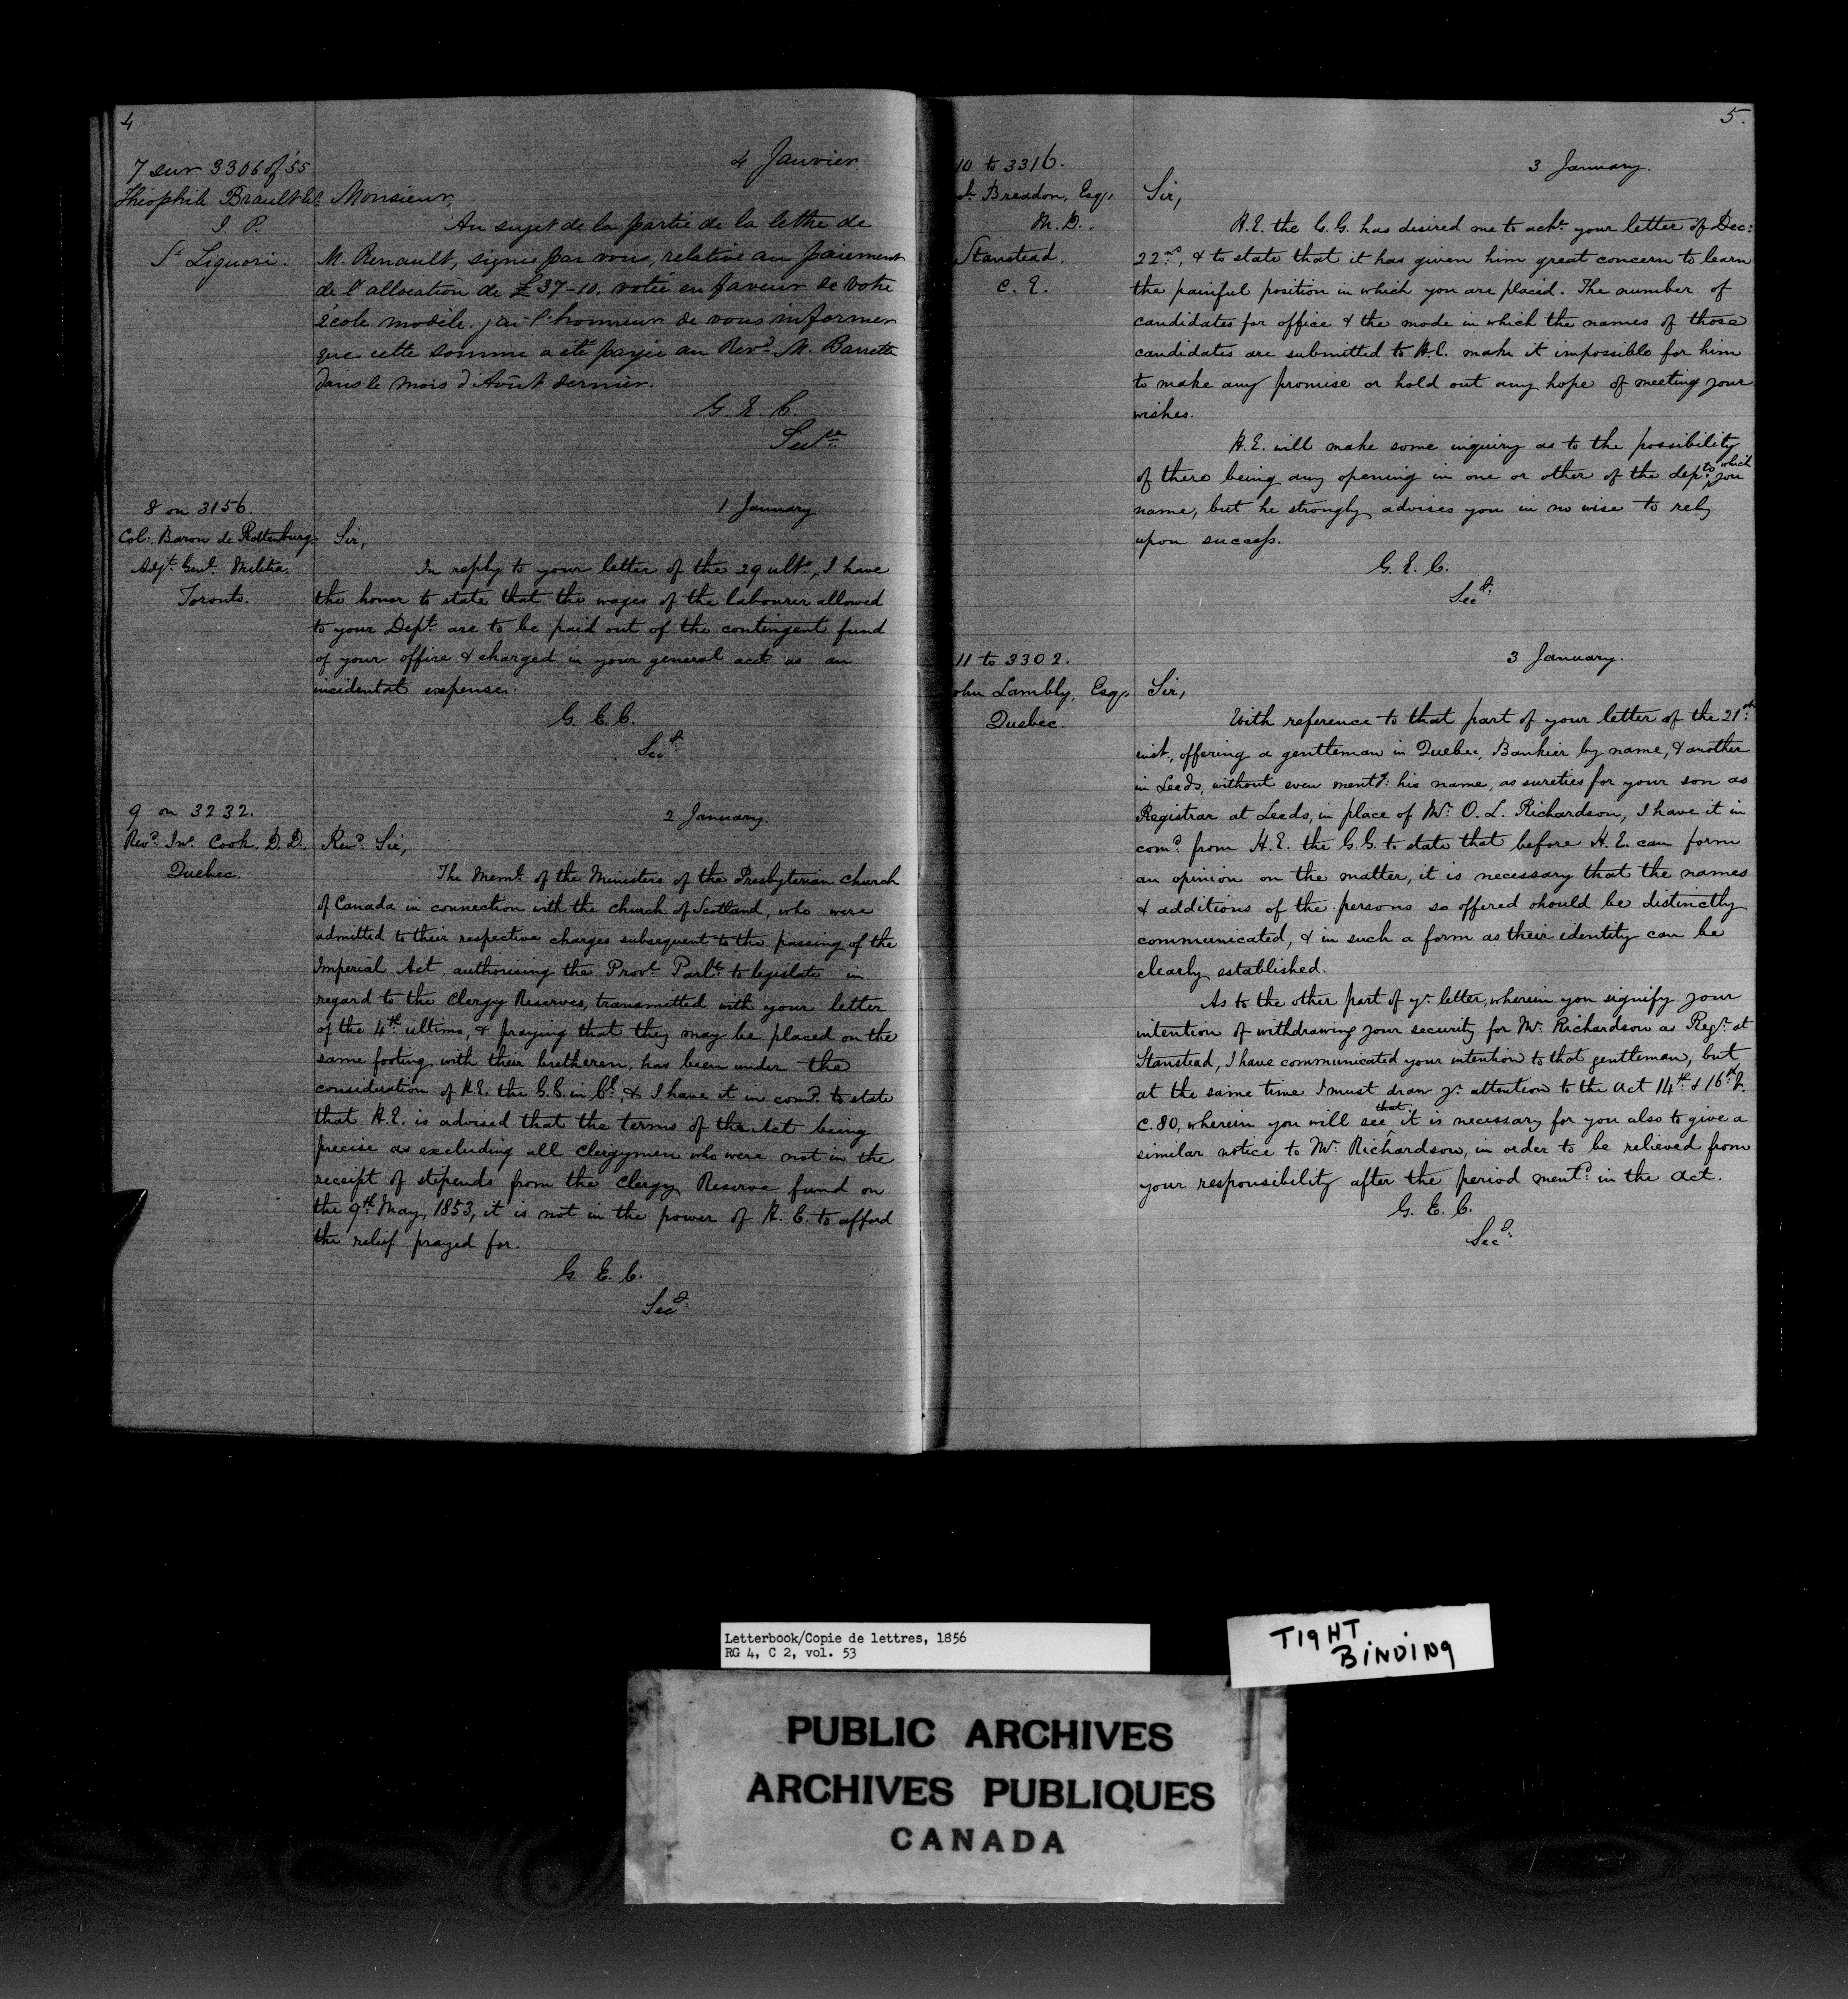 4
7 sur 3306 of '55
Théophile Brault
J. P.
St Liguori.
4 Janvier
Monsieur,
Au sujet de la partie de la lettre de
M. Renault, signée par vous, relative au paiement
de l'allocation de £37-10. votée en faveur de votre
école modèle, j'ai l'honneur de vous informer
que cette somme a été payée au Revd. M. Barrette
dans le mois d'Août dernier.
G. E. C.
Secre.
8 on 3156.
Col: Baron de Rottenburg
Adjt. Genl. Militia.
Toronto.
1 January
Sir,
In reply to your letter of the 29 ulto., I have
the honor to state that the wages of the labourer allowed
to your Dept. are to be paid out of the contingent fund
of your office & charged in your general act. as an
incidental expense.
G. E. C.
Secy.
9 on 3232.
Revd. Jno. Cook. D. D.
Quebec.
2 January.
Revd. Sir,
The Meml. of the Ministers of the Presbyterian church
of Canada in connection with the church of Scotland, who were
admitted to their respective charges subsequent to the passing of the
Imperial Act authorising the Provl. Parlt. to legislate in
regard to the Clergy Reserves, transmitted with your letter
of the 4th ultimo, & praying that they may be placed on the
same footing with their bretheren, has been under the
consideration of H.E. the G.G. in Cl., & I have it in comd. to state
that H.E. is advised that the terms of the Act being
precise as excluding all clergymen who were not in the
receipt of stipends from the Clergy Reserve fund on
the 9th May, 1853, it is not in the power of H. E. to afford
the relief prayed for.
G. E. C.
Secy.
5.
10 to 3316.
Breadon, Esqr.
M. D.
Stanstead.
C. E.
3 January.
Sir,
H.E. the G.G. has desired me to acke. your letter of Dec:
22nd, & to state that it has given him great concern to learn
the painful position in which you are placed. The number of
candidates for office & the mode in which the names of those
candidates are submitted to H.E. make it impossible for him
to make any promise or hold out any hope of meeting your
wishes.
H.E. will make some inquiry as to the possibility
of there being any opening in one or other of the depts. to which you
name, but he strongly advises you in no wise to rely
upon success.
G. E. C.
Secy.
11 to 3302.
ohn Lambly, Esqr.
Quebec.
3 January.
Sir,
With reference to that part of your letter of the 21st
inst., offering a gentleman in Quebec, Bankier by name, & another
in Leeds, without even mentg. his name, as sureties for your son as
Registrar at Leeds, in place of Mr. O. L. Richardson, I have it in
comd. from H.E. the G.G. to state that before H.E. can form
an opinion on the matter, it is necessary that the names
& additions of the persons so offered should be distinctly
communicated, & in such a form as their identity can be
clearly established.
As to the other part of yr. letter, wherein you signify your
intention of withdrawing your security for Mr. Richardson as Regr. at
Stanstead, I have communicated your intention to that gentleman, but
at the same time I must draw yr. attention to the Act 14th & 16th V.
c. 80, wherein you will see that it is necessary for you also to give a
similar notice to Mr. Richardson, in order to be relieved from
your responsibility after the period mentd. in the Act.
G. E. C.
Secy.
Letterbook/Copie de lettres, 1856
RG 4, C 2, vol. 53
TIGHT
BINDING
PUBLIC ARCHIVES
ARCHIVES PUBLIQUES
CANADA